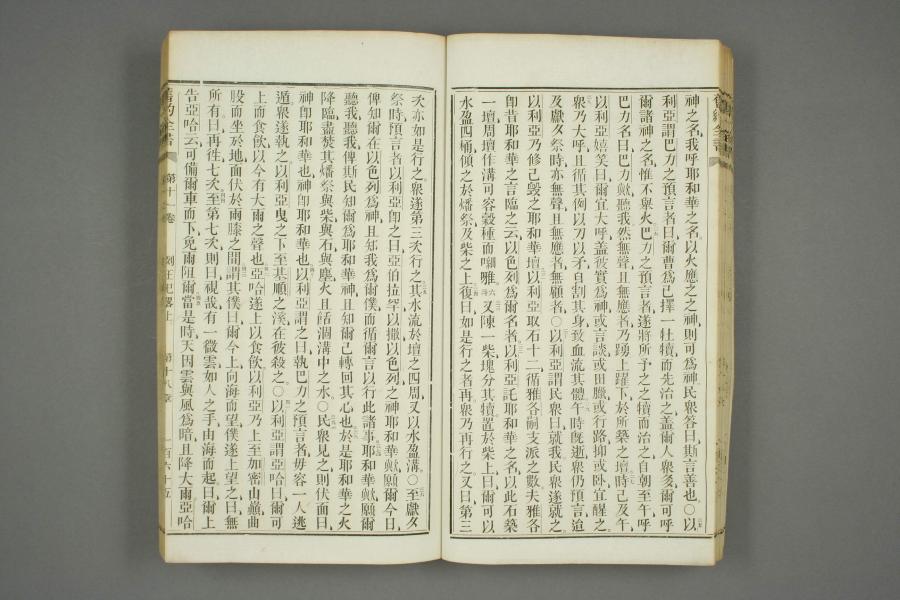 神之名我呼耶和華之名以火應之之神則可為神民衆答曰斯言善也○以
利亞謂巴力之預言者曰爾曹為己擇一牡犢而先治之蓋爾人衆多爾可呼
爾諸神之名惟不舉火巴力之預言者遂將所予之之犢而治之自朝至午呼
巴力名曰巴力歟聽我然無聲且無應者乃踴上躍下於所築之壇時己及午
以利亞嬉笑曰爾宜大呼蓋彼實為神或言談或田臘或行路抑或卧宜醒之
衆乃大呼且循其例以刀以矛自割其身致血流其體午時既逝衆仍預言迨
及獻夕祭時亦無聲且無應者無顧者○以利亞謂民衆曰就我民衆遂就之
以利亞乃修已毀之耶和華壇以利亞取石十二循雅各嗣支派之數夫雅各
卽昔耶和華之言臨之云以色列為爾名者以利亞託耶和華之名以此石築
一壇周壇作溝可容穀種而嘲雅又陳一柴塊分其犢置於柴上曰爾可以
水盈四桶傾之於燔祭及柴之上復曰如是行之者再衆乃再行之又曰第三
次亦如是行之衆遂第三次行之其水流於壇之四周又以水盈溝○至獻夕
祭時預言者以利亞卽之曰亞伯拉罕以撒以色列之神耶和華歟願爾今日
俾知爾在以色列為神且知我為爾僕而循爾言以行此諸事耶和華歟願爾
聽我聽我俾斯民知爾為耶和華神且知爾已轉回其心也於是耶和華之火
降臨盡焚其燔祭與柴與石與塵火且餂涸溝中之水○民衆見之則伏面曰
神卽耶和華也神卽耶和華也以利亞謂之曰執巴力之預言者毋容一人逃
遁衆遂執之以利亞曳之下至基順之溪在彼殺之○以利亞謂亞哈曰爾可
上而食飲以今有大雨之聲也亞哈遂上以食飲以利亞乃上至加密山巔曲
股而坐於地面伏於兩膝之間謂其僕曰爾今上向海而望僕遂上望之曰無
所有曰再徃七次至第七次則曰視哉有一微雲如人之手由海而起曰爾上
告亞哈云可備爾車而下免雨阻爾當是時天因雲與風為暗且降大雨亞哈
舊約全書 第十一卷 列王紀畧上 第十八章 一百六十五